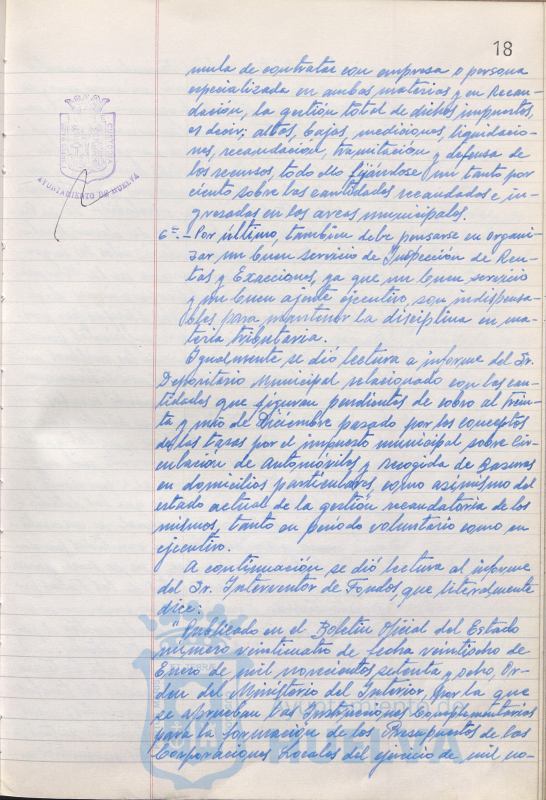 18
mula de contratar con empresa o persona
especializada en ambas materias y en Recau-
dación, la gestión total de dichos impuestos,
es decir; altas, bajas, mediciones, liquidacio-
nes, recaudación, tramitación y defensa de
los recursos, todo ello fijándose un tanto por
ciento sobre las cantidades recaudadas e in-
gresadas en las arcas municipales.
6º.- Por último, también debe pensarse en organi-
zar un buen servicio de Inspección de Ren-
tas y Exacciones, ya que un buen servicio
y un buen agente ejecutivo, son indispensa-
bles para mantener la disciplina en ma-
teria tributaria.
Igualmente se dió lectura a informe del Sr.
Depositario Municipal relacionado con las can-
tidades que figuran pendientes de cobro al trein-
ta y uno de Diciembre pasado por los conceptos
de las tasas por el impuesto municipal sobre Cir-
culación de Automóviles y recogida de Basuras
en domicilios particulares, como asimismo del
estado actual de la gestión recaudatoria de los
mismos, tanto en periodo voluntario como en
ejecutivo.
A continuación se dió lectura al informe
del Sr. Interventor de Fondos, que literalmente
dice:
"Publicado en el Boletín Oficial del Estado
número veinticuatro de fecha veintiocho de
Enero de mil novecientos setenta y ocho, Or-
den del Ministerio del Interior, por la que
se aprueban las Instrucciones Complementarias
para la formación de los Presupuestos de las
Corporaciones Locales del ejercicio de mil no-
AYUNTAMIENTO DE HUELVA
Ayuntamiento de
HUELVA